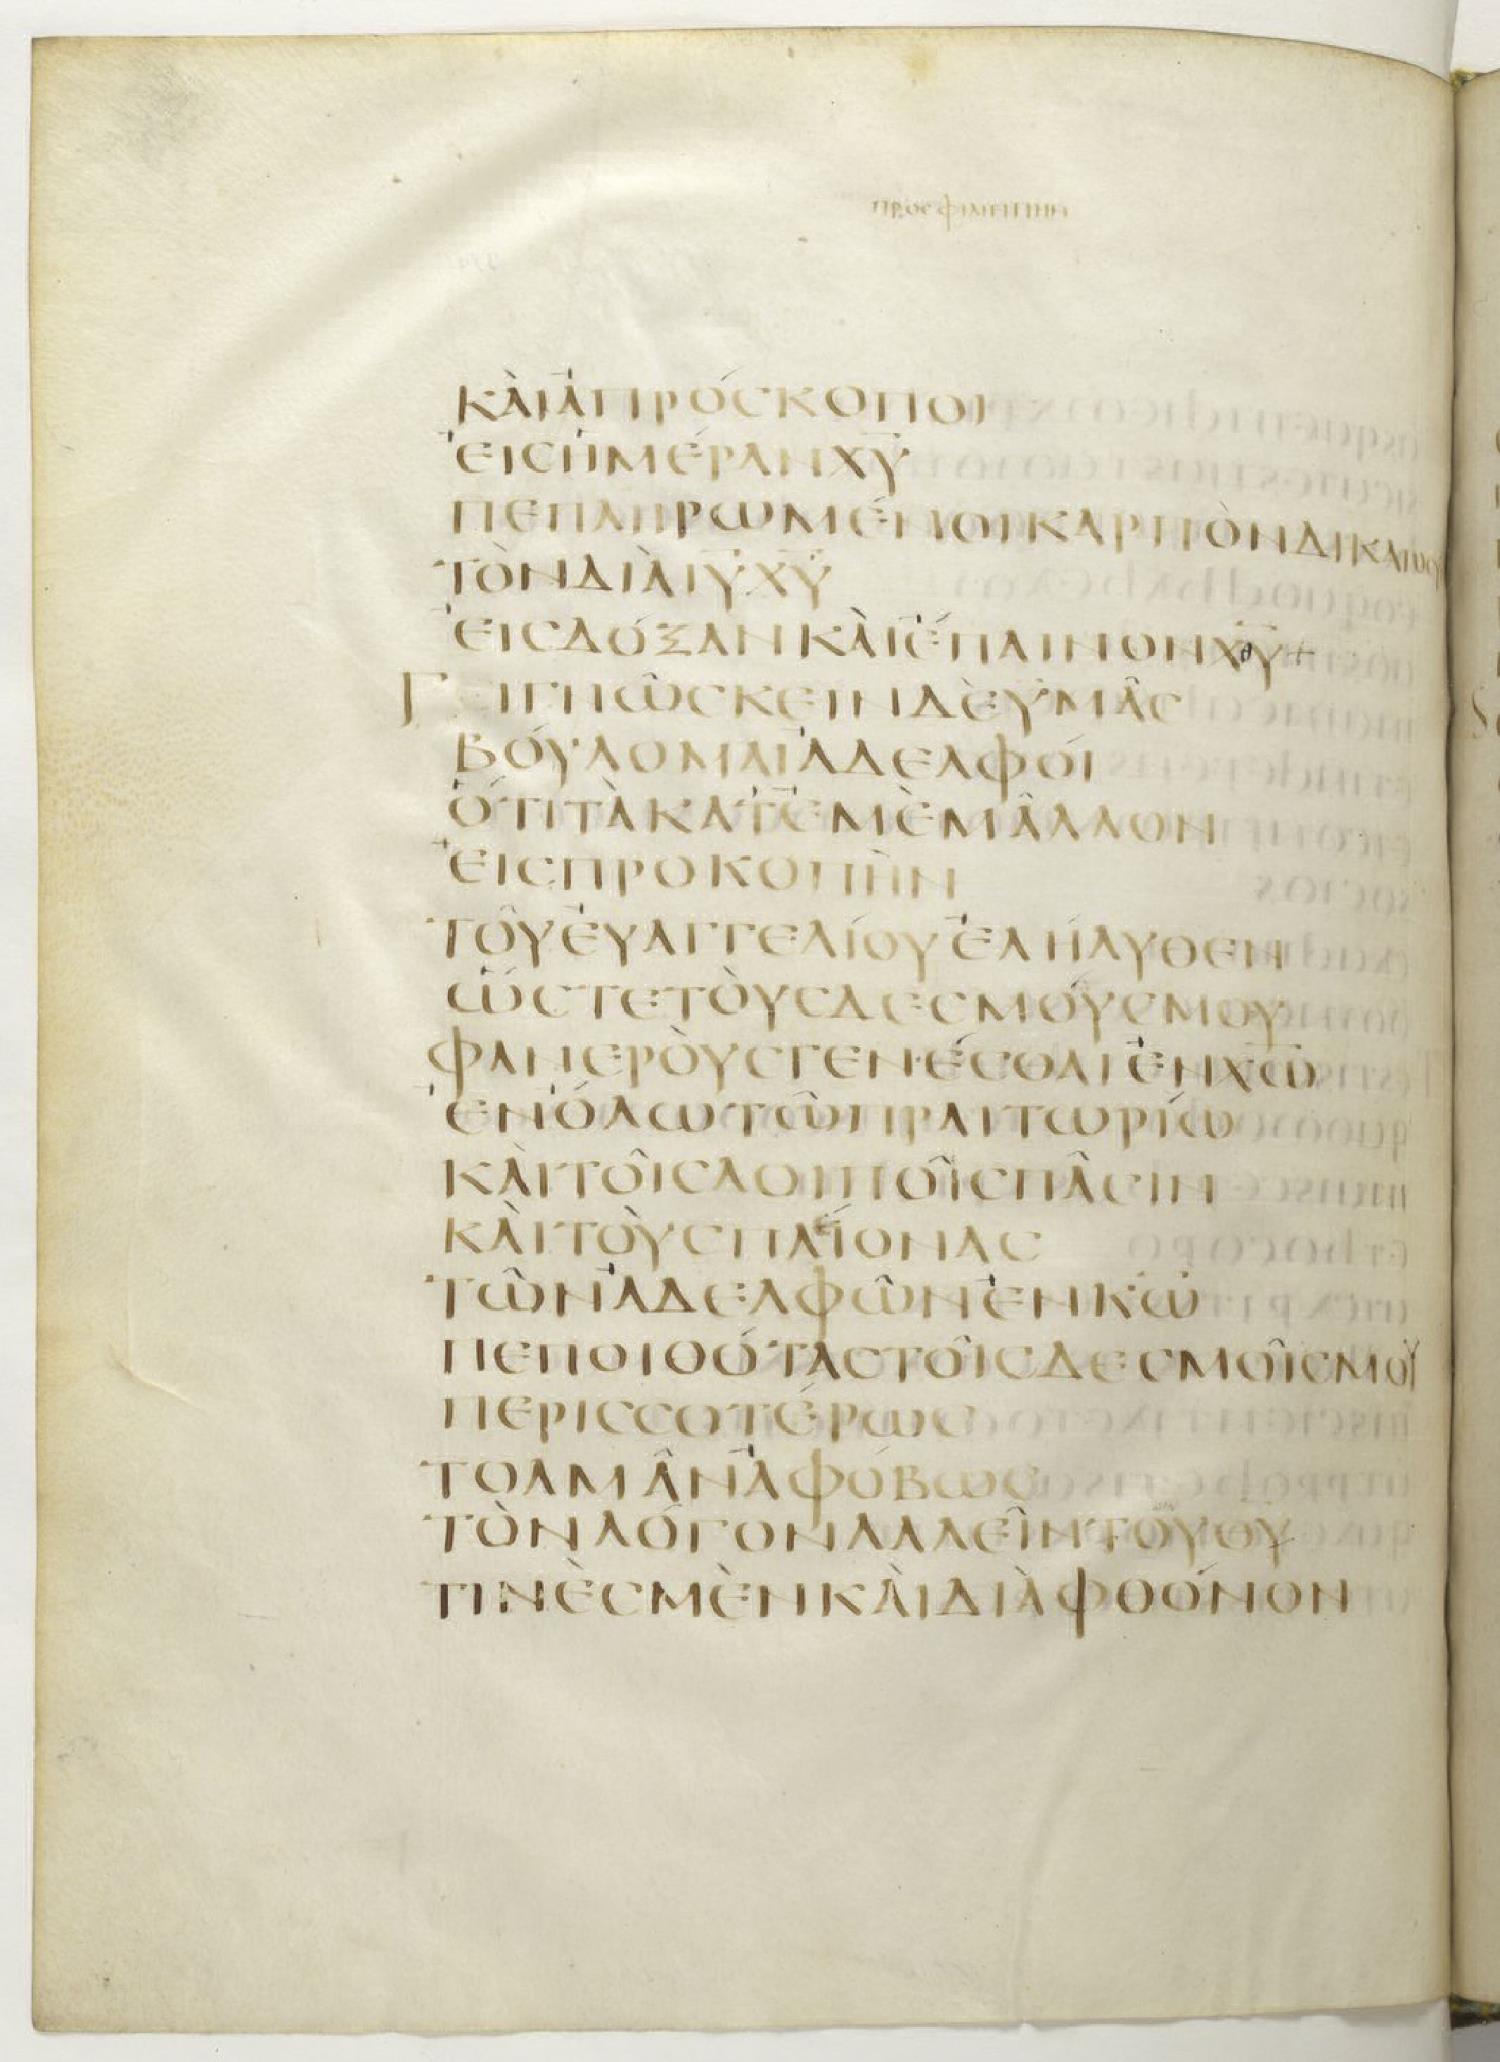 ΠΡΟΣ ΦΙΛΙΠΠΗ
ΚΑῚἈΠΡΌΣΚΟΠΟΙ
ἘΙΣἩΜΈΡΑΝΧΥ
ΠΕΠΛΗΡΩΜΈΝΟΙΚΑΡΠῸΝΔΙΚΑΙΟΣΥ
ΤῸΝΔΙᾺΙΥΧΥ
ἘΙΣΔΌΞΑΝΚΑῚἜΠΑΙΝΟΝΧΥ+
ΓΕΙΓΝΩ͂ΣΚΕΙΝΔῈὙΜΑ͂Σ
ΒΟΎΛΟΜΑΙἈΔΕΛΦΟΊ
ὍΤΙΤᾺΚΑΤἘΜῈΜΑ͂ΛΛΟΝ
ἘΙΣΠΡΟΚΟΠῊΝ
ΤΟΥ͂ἘΥΑΓΓΕΛΊΟΥἘΛΉΛΥΘΕΝ
ὭΣΤΕΤΟῪΣΔΕΣΜΟΎΣΜΟΥ
ΦΑΝΕΡΟῪΣΓΕΝΈΣΘΑΙἘΝΧΩ
ἘΝὍΛΩΤΩ͂ΠΡΑΙΤΩΡΊΩ
ΚΑῚΤΟΙ͂ΣΛΟΙΠΟΙ͂ΣΠΑ͂ΣΙΝ
ΚΑῚΤΟῪΣΠΛΕΊΟΝΑΣ
ΤΩ͂ΝἈΔΕΛΦΩ͂ΝἘΝΚΩ
ΠΕΠΟΙΘΌΤΑΣΤΟΙ͂ΣΔΕΣΜΟΙ͂ΣΜΟΥ
ΠΕΡΙΣΣΟΤΈΡΩΣ
ΤΟΛΜΑ͂ΝἈΦΌΒΩΣ
ΤῸΝΛΌΓΟΝΛΑΛΕΙ͂ΝΤΟΥ͂ΘΥ
ΤΙΝῈΣΜῈΝΚΑῚΔΙᾺΦΘΌΝΟΝ